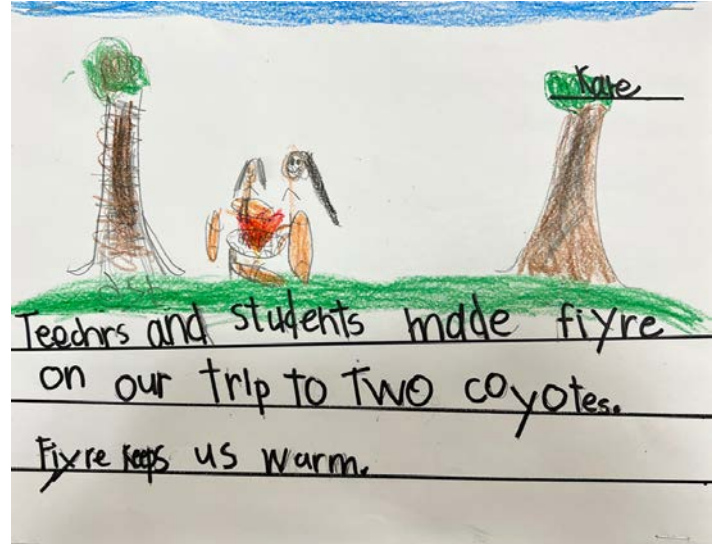 Kate
Teechrs and students made fiyre
on our trip to Two coyotes.
Fiyre keeps us warm.